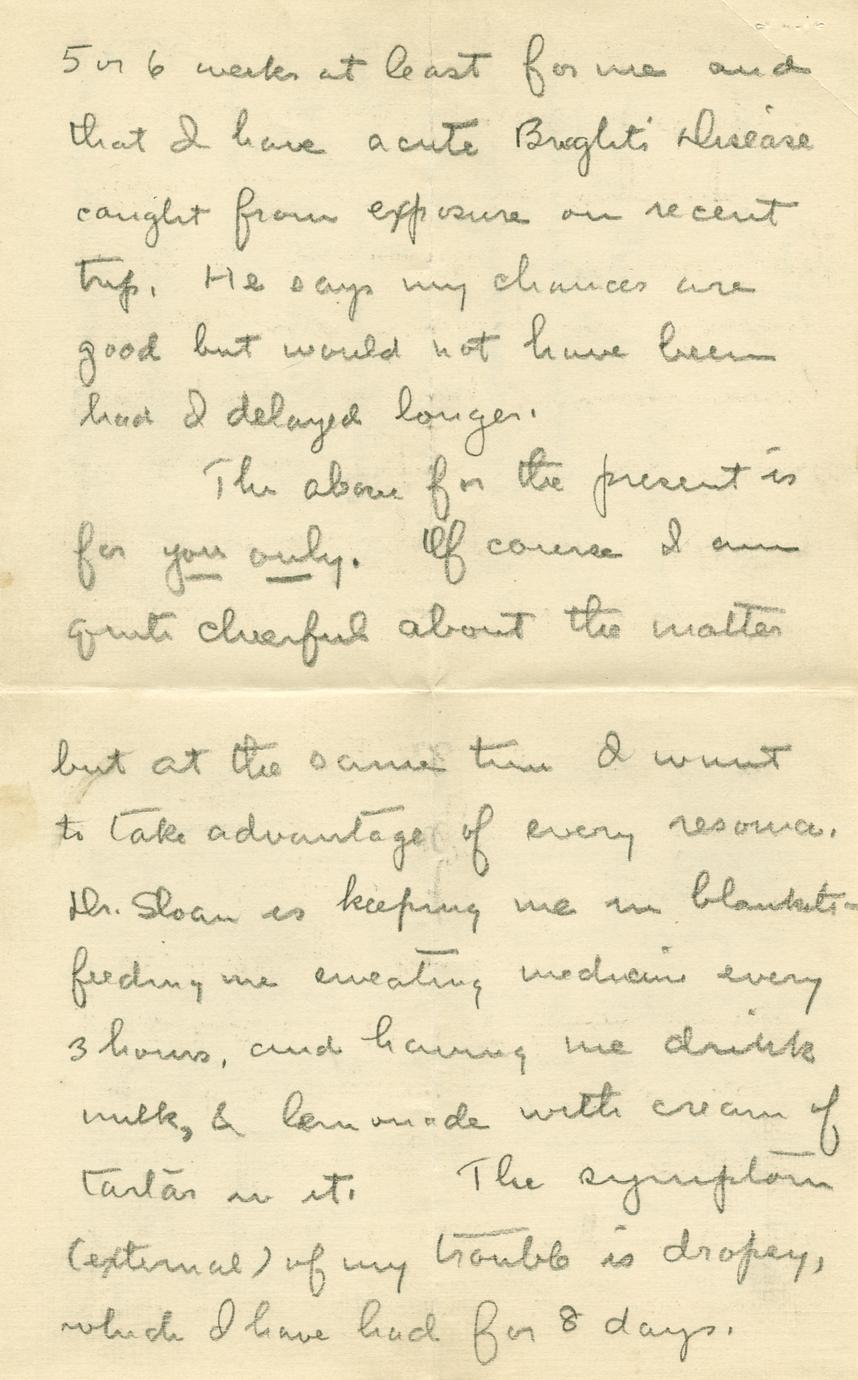 5 or 6 weeks at least for me and
that I have acute Bright's Disease
caught from exposure on recent
trip. He says my chances are
good but would not have been
had I delayed longer.
The above for the present is
for you only. Of course I am
quite cheerful about the matter
but at the same time I want
to take advantage of every resource.
Dr. Sloan is keeping me in blankets-
feeding me sweating medicine every
3 hours, and having me drink
milk, & lemonade with cream of
tartar in it. The symptom
(external) of my trouble is dropsy,
which I have had for 8 days.